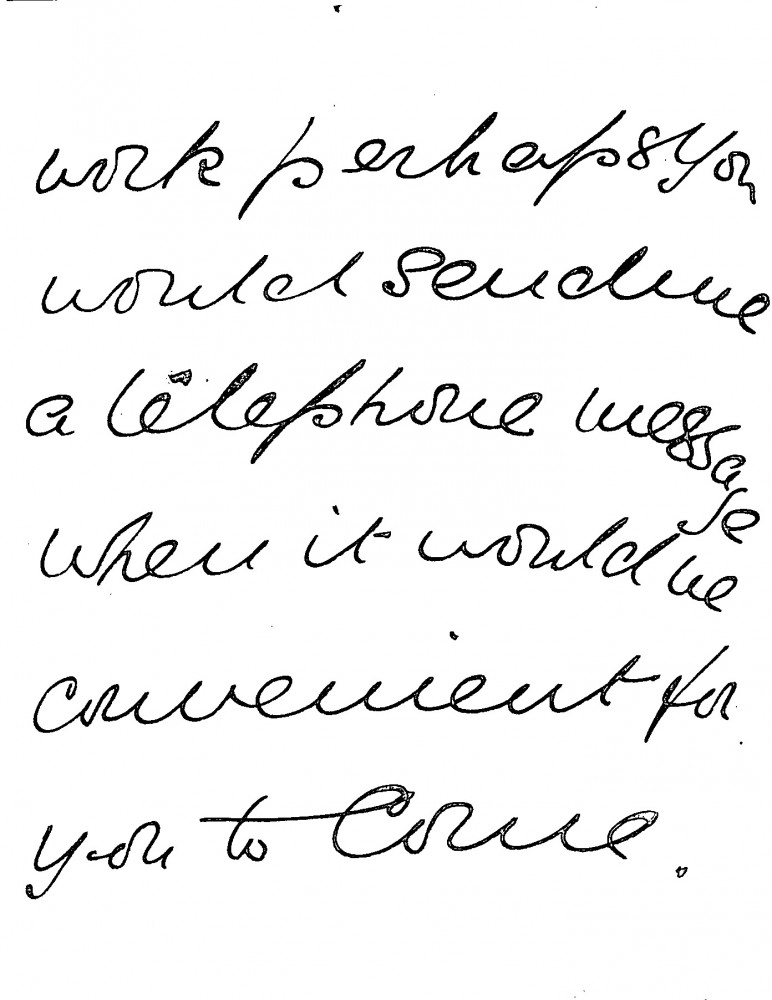 work perhaps you
would send me
a telephone message
when it would be
convenient for
you to come.